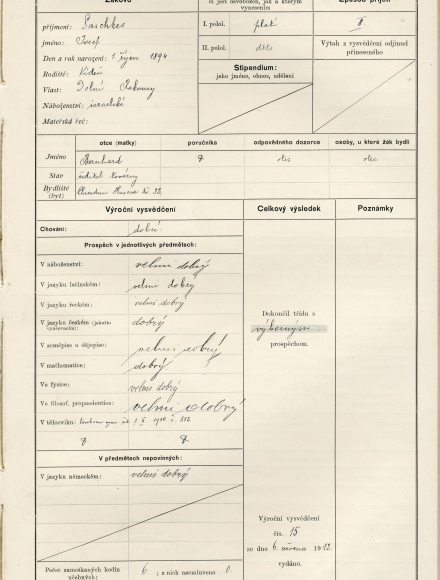 Žákovo
či jest osvobozen, jak a kterým
vynesením
Způsob přijetí
příjmení: Saschkes
jméno: Josef
Den a rok narození: 1 října 1894
Rodiště: Vídeň
Vlast: Dolní Rakousy
Náboženství: israelské
Mateřská řeč:
I. polol. platí
II. polol. dtto
II.
Výtah z vysvědčení odjinud
přineseného
Stipendium:
jeho jméno, obnos, udělení
otce (matky) poručníka odpovědného dozorce osoby, u které žák bydlí
Jméno Bernhard otec otec
Stav ředitel továrny
Bydliště Chrudim Husova 32.
(byt)
Výroční vysvědčení Celkový výsledek Poznámky
Chování: dobré.
Prospěch v jednotlivých předmětech:
V náboženství: velmi dobrý
V jazyku latinském: velmi dobrý
V jazyku řeckém: velmi dobrý
V jazyku českém (jakožto vyučovacím): dobrý
V zeměpise a dějepise: velmi dobrý
V mathematice: dobrý
Ve fysice: velmi dobrý
Ve filosof. propaedeutice: velmi dobrý
V tělocviku:
Dokončil třídu s
výborným
prospěchem.
V předmětech nepovinných:
V jazyku německém: velmi dobrý
Výroční vysvědčení
čís. 15
ze dne 6. června 1912.
vydáno.
Počet zameškaných hodin 6 ; z nich neomluveno 0.
učebných: